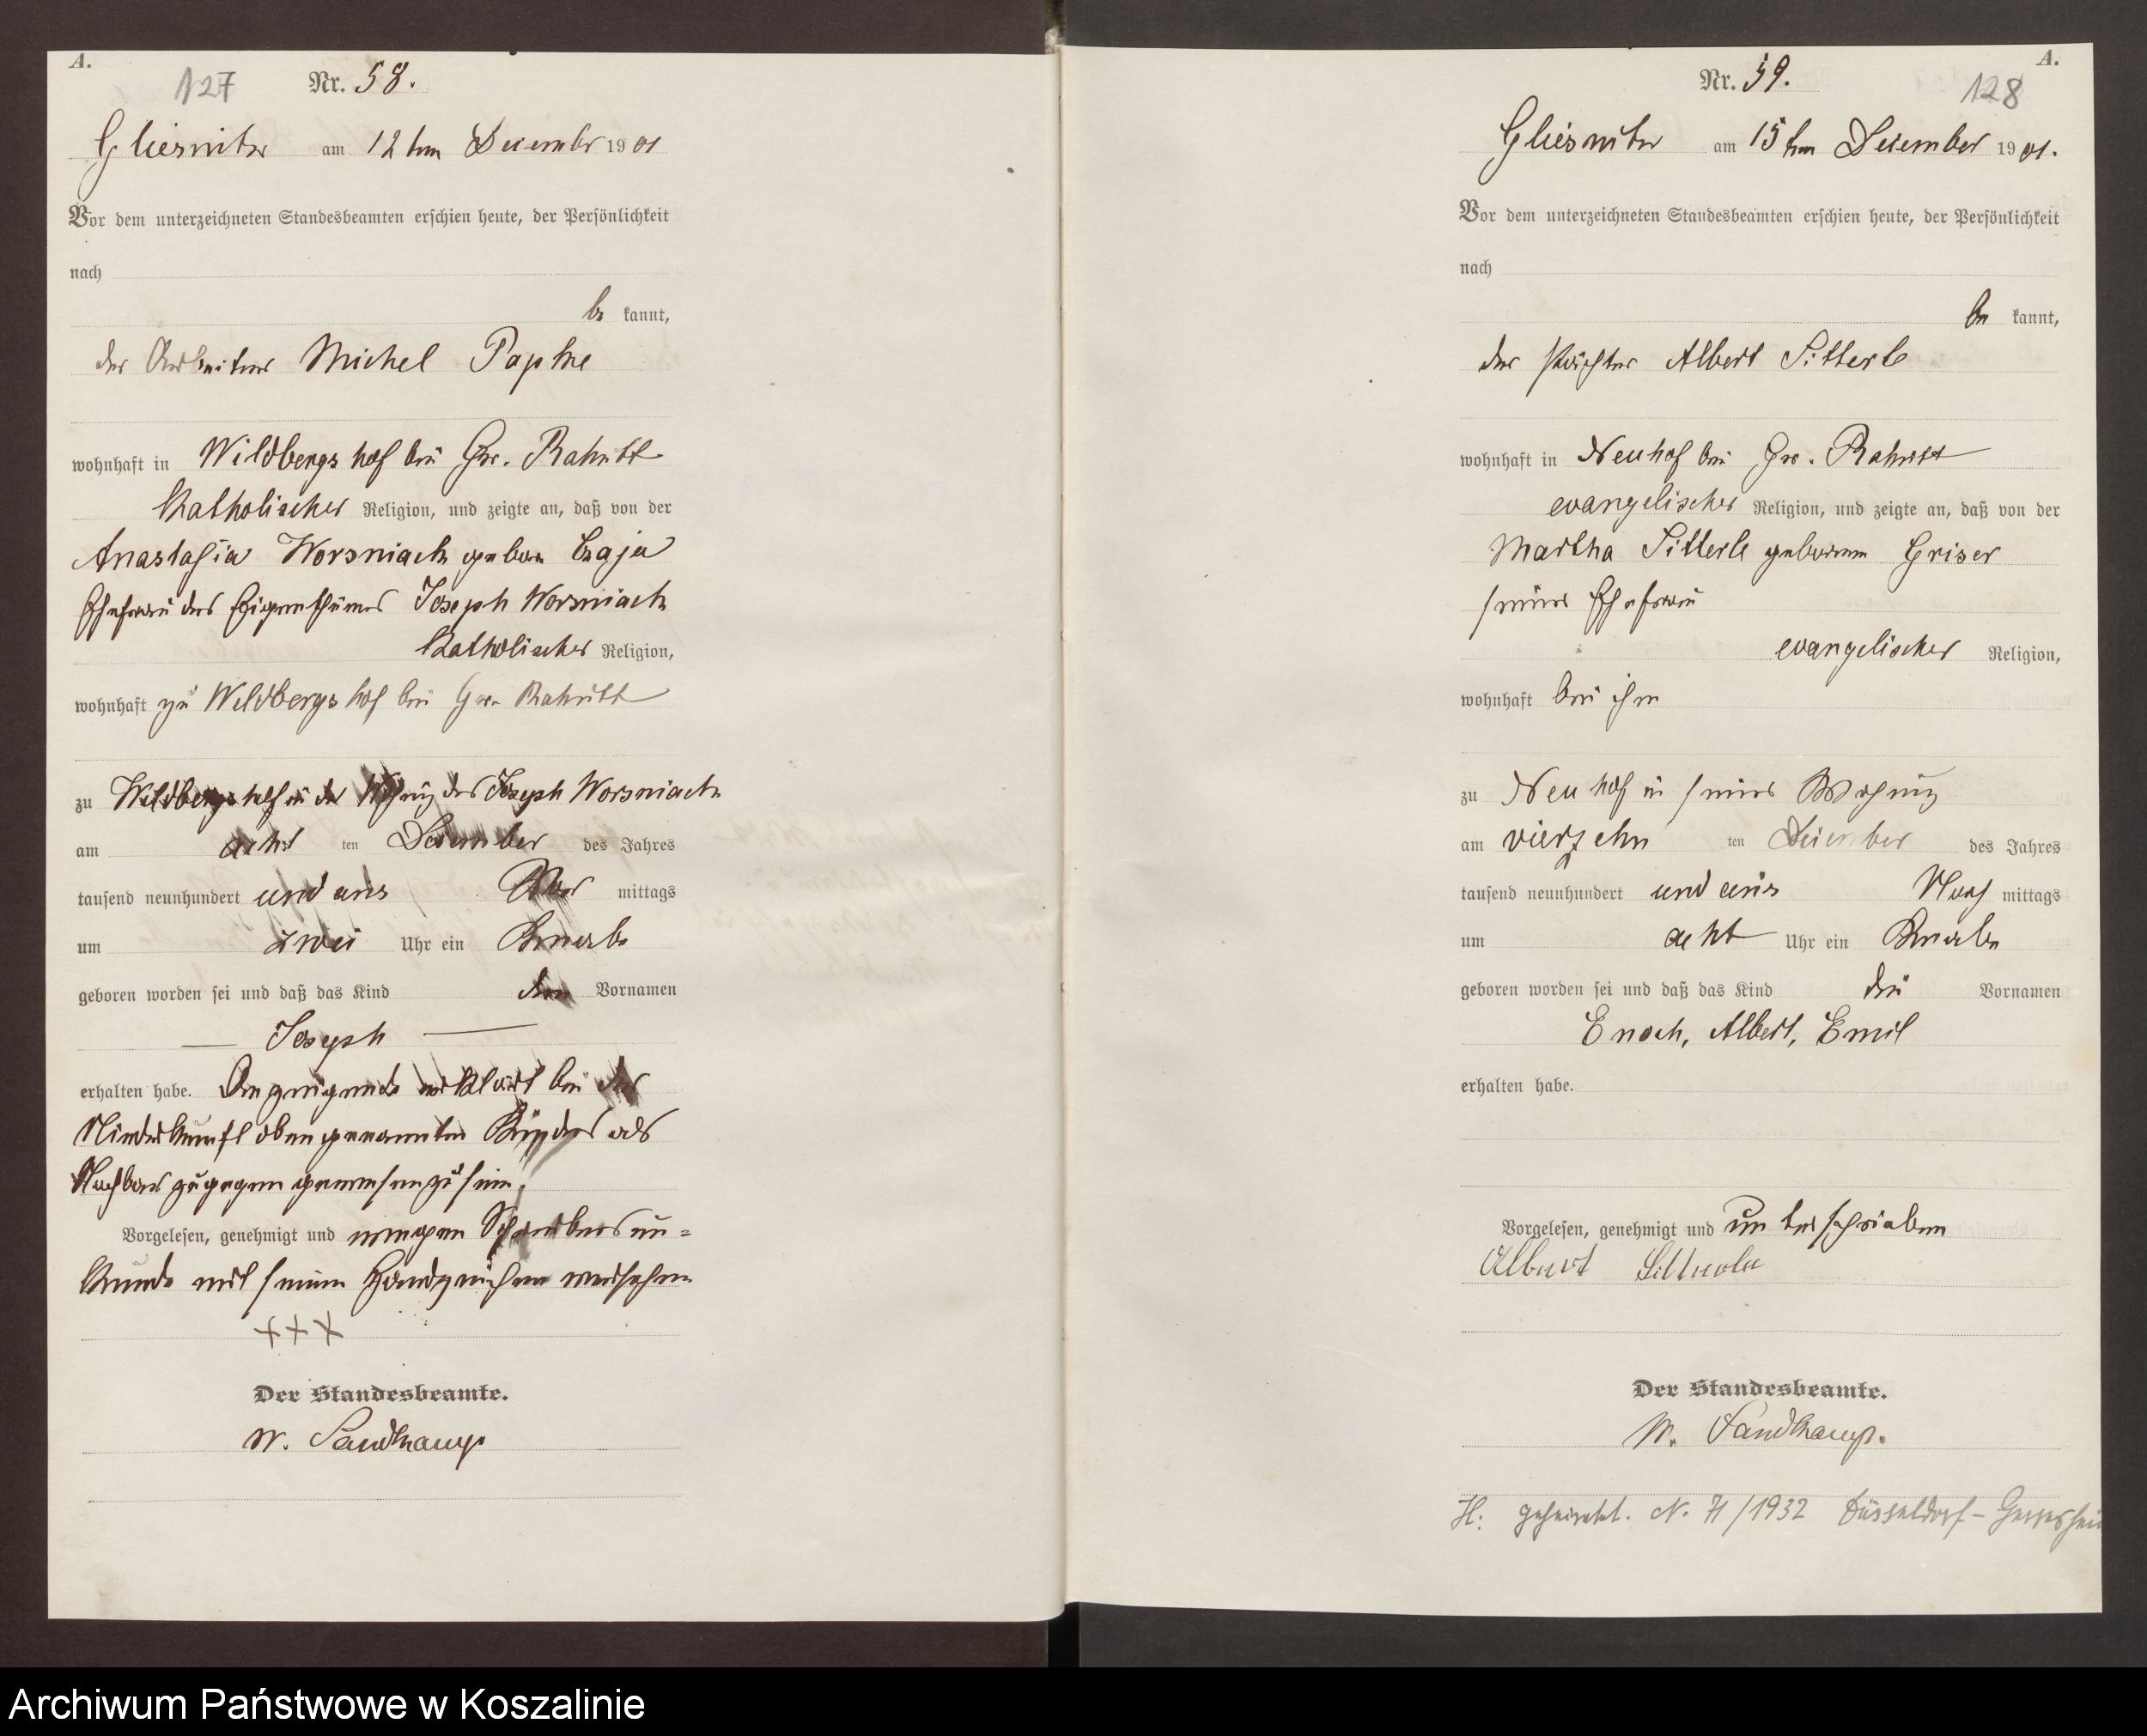 A.
127 Nr. 58.
Gliesnitz am 12ten December 1901
Vor dem unterzeichneten Standesbeamten erschien heute, der Persönlichkeit
nach
be kannt,
der Arbeiter Michel Papke
wohnhaft in Wildbergshof bei Gr. Rakitt
Katholischer Religion, und zeigte an, daß von der
Anastasia Worsniack geboren
Ehefrau des Eigenthümers Joseph Worsniack
Katholischer Religion,
wohnhaft zu Wildbergshof bei Gr. Rakitt
zu Wildbergshof in der Wohnung des Joseph Worsniack
am acht ten December des Jahres
tausend neunhundert und eins Vor mittags
um zwei Uhr ein Knabe
geboren worden sei und daß das Kind den Vornamen
Joseph
erhalten habe. Anzeigende erklärt bei der
Niederkunft obengenannten Kindes als
Nachbar zugegen gewesen zu sein,
Vorgelesen, genehmigt und wegen Schreibensun=
kunde mit seinem Handzeichen versehen
+++
Der Standesbeamte.
W. Sandkamp
A.
Nr. 59. 128
Gliesnitz am 15ten December 1901.
Vor dem unterzeichneten Standesbeamten erschien heute, der Persönlichkeit
nach
be kannt,
der Pächter Albert Sitterle
wohnhaft in Neuhof bei Gr. Rakitt
evangelischer Religion, und zeigte an, daß von der
Martha Sitterle geborenen Griser
seiner Ehefrau
evangelischer Religion,
wohnhaft bei ihm
zu Neuhof in seiner Wohnung
am vierzehn ten December des Jahres
tausend neunhundert und eins Nach mittags
um acht Uhr ein Knabe
geboren worden sei und daß das Kind die Vornamen
Enoch, Albert, Emil
erhalten habe.
Vorgelesen, genehmigt und unterschrieben
Albert Sitterle
Der Standesbeamte.
W. Sandkamp.
H: geheiratet. N. 71/1932 Düsseldorf-Gerresheim
Archiwum Państwowe w Koszalinie